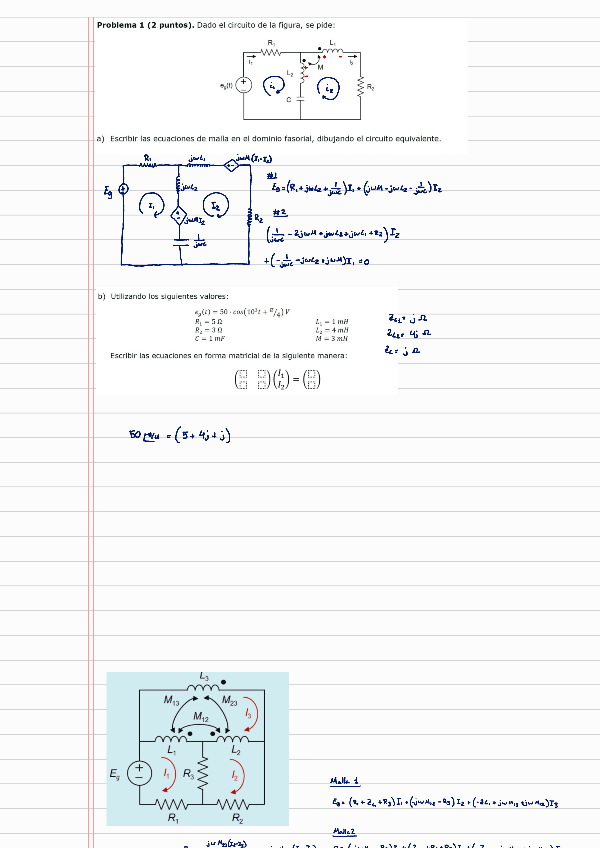 Problema 1 (2 puntos). Dado el circuito de la figura, se pide:
R₁
L₁
i₁
L₂
M
i₂
e_g(t)
i₁
i₂
R₂
C
a) Escribir las ecuaciones de malla en el dominio fasorial, dibujando el circuito equivalente.
R₁
jωL₁
jωM(I₁-I₂)
#1
Eg = (R₁ + jωL₂ + 1/jωC) I₁ + (jωM - jωL₂ - 1/jωC) I₂
Eg
jωL₂
I₁
I₂
jωMI₂
R₂
1/jωC
#2
(1/jωC - 2jωM + jωL₂ + jωL₁ + R₂) I₂
+ (-1/jωC - jωL₂ + jωM) I₁ = 0
b) Utilizando los siguientes valores:
e_g(t) = 50 · cos(10³t + π/4) V
R₁ = 5 Ω L₁ = 1 mH
R₂ = 3 Ω L₂ = 4 mH
C = 1 mF M = 3 mH
Z_L1 = j Ω
Z_L2 = 4j Ω
Z_C = j Ω
Escribir las ecuaciones en forma matricial de la siguiente manera:
(I₁ I₂) = ( )
50 ∠π/4 = (5 + 4j + j)
L₃
M₁₃
M₂₃
M₁₂
I₃
L₁
L₂
E_g
I₁
R₃
I₂
R₁
R₂
Malla 1
Malla 2